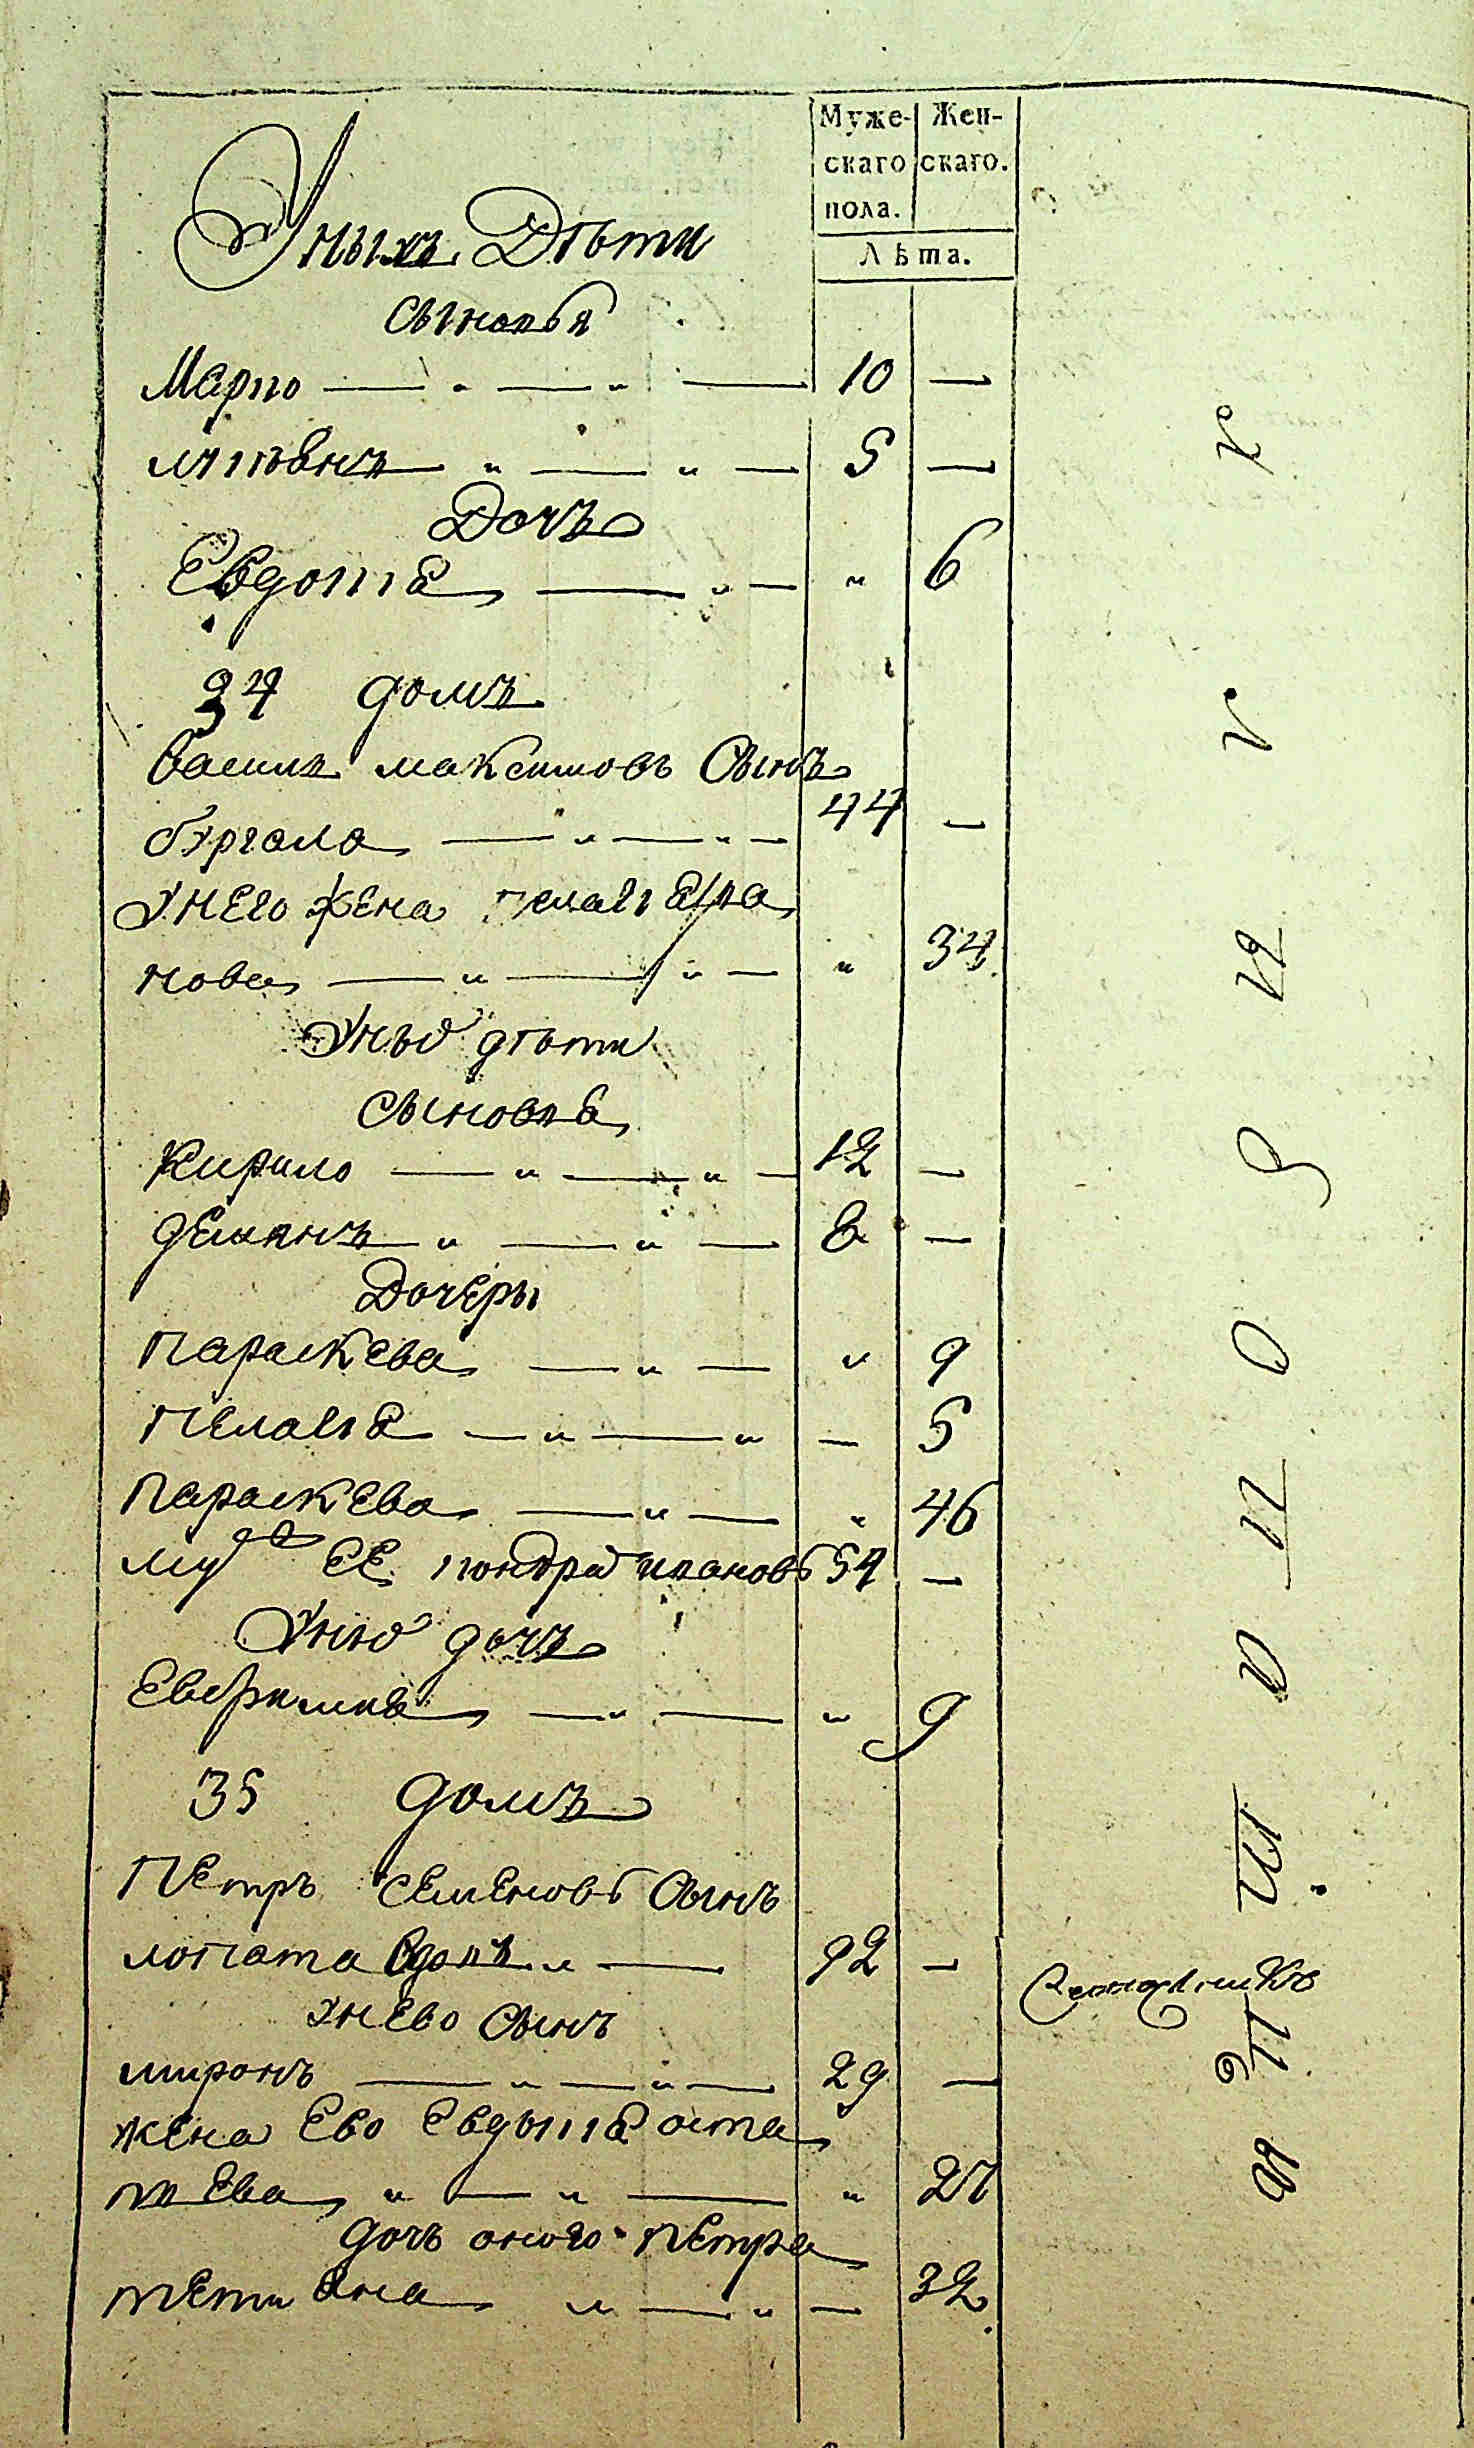 Муже- Жен-
скаго скаго.
пола.
Лѣта.
У ныхъ Дѣти
Сыновья
Марко — 10 —
Литвинъ — 5 —
Дочъ
Евдокія — 6
34 домъ
Василь Максимовъ Сынъ
бургала — 44 —
У него жена Пелагія Ива
нова — 34
У ныхъ дѣти
Сыновья
Кирило — 12 —
Демянъ — 8 —
Дочеры
Параскева — 9
Пелагія — 5
Параскева — 46
мужъ ее Кондрат ивановъ 54 —
У ныхъ дочъ
Евфимія — 9
35 домъ
Петръ Семеновъ Сынъ
лопата вдовъ — 92 —
у нево Сынъ
миронъ — 29 —
жена Ево Евдокія оста
пиева — 27
дочъ оного Петра
тетиана — 32